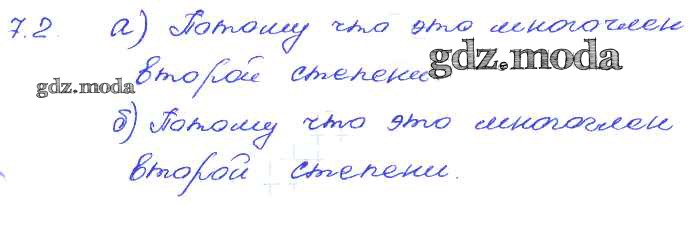 7.2. а) Потому что это многочлен
второй степени.
gdz.moda
gdz.moda
б) Потому что это многочлен
второй степени.